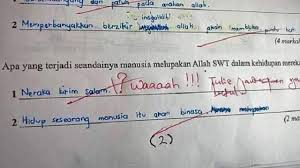 dan patuh pada arahan allah.
insyallah
2 Memperbanyakkan berzikir allah akan pintu
(4 markah)
Apa yang terjadi seandainya manusia melupakan Allah SWT dalam kehidupan mereka
1 Neraka kirim salam. ? Waaaah !!! Tulis jawapan
betul
2 Hidup seseorang manusia itu akan binasa
(2 ma
(2)